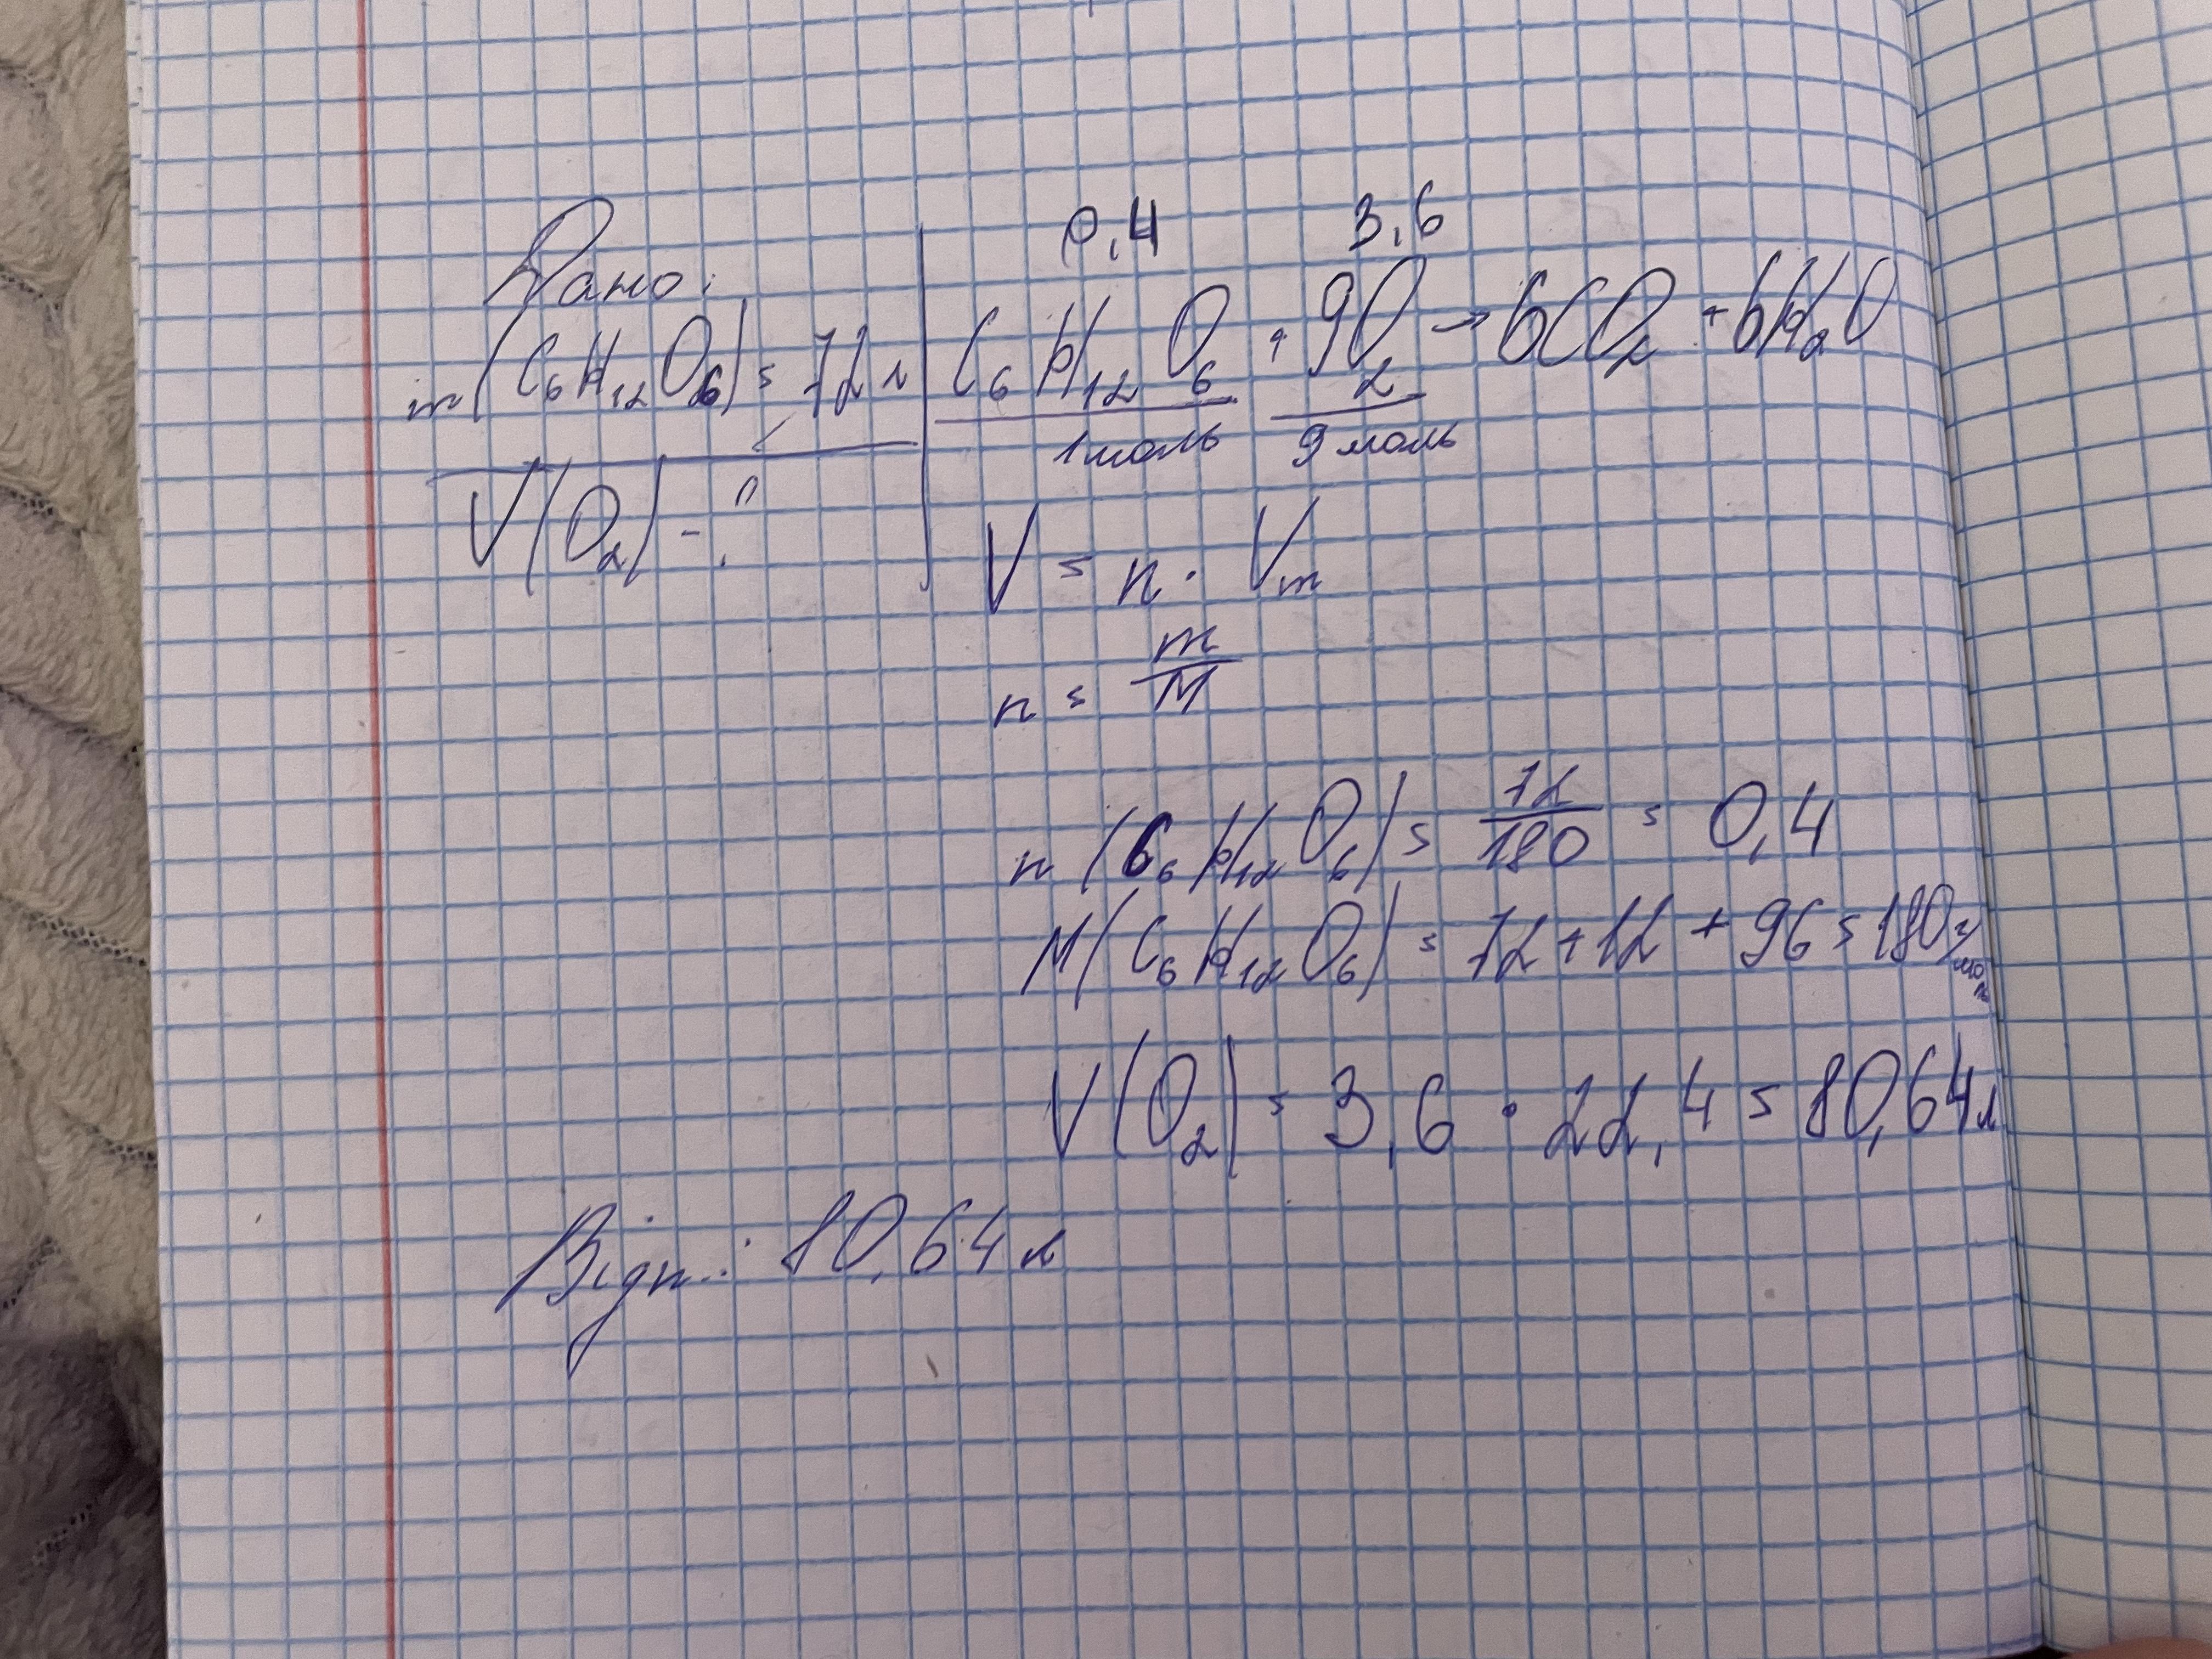 Дано:
m(C₆H₁₂O₆) = 72 г
V(O₂) - ?
0,4 3,6
C₆H₁₂O₆ + 9O₂ → 6CO₂ + 6H₂O
1 моль 9 моль
V = n · Vm
n = m/M
n(C₆H₁₂O₆) = 72/180 = 0,4
M(C₆H₁₂O₆) = 72 + 12 + 96 = 180 г/моль
V(O₂) = 3,6 · 22,4 = 80,64 л
Відп.: 80,64 л